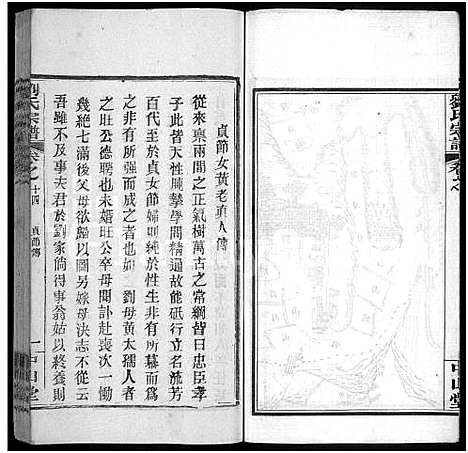 劉氏宗譜
中山堂
貞節女黃老孺人傳
從來稟兩間之正氣樹萬古之常綱皆曰忠臣孝
子此皆天性肫摯學問精通故能砥行立名流芳
百代至於貞女節婦則純於性生非有所慕而為
之非有所强而威之者也如 劉母黃太孺人者
之旺公德聘也未婚旺公卒母聞訃赴喪一慟
幾絶七滿後父母欲歸以圖另嫁母決志不從曰
吾雖不及事夫君於劉家倘得事翁姑以終養則
劉氏宗譜
卷之
十四
貞節傳
一
中山堂